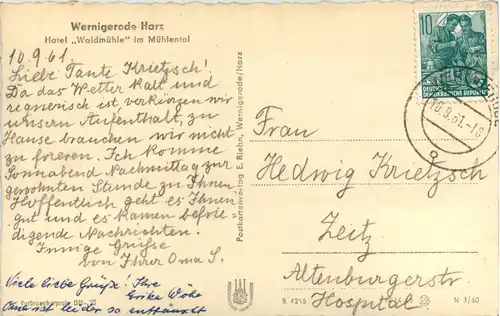 Wernigerode Harz
Hotel „Waldmühle" im Mühlental
10.9.61
Liebe Tante Krietzsch!
Da das Wetter kalt und
regnerisch ist, verkürzen wir
unsern Aufenthalt, zu
Hause brauchen wir nicht
zu frieren. Ich komme
Sonnabend Nachmittag zur
gewohnten Stunde zu Ihnen.
Hoffentlich geht es Ihnen
gut und es kamen befrie-
digende Nachrichten.
Innige Grüße
von Ihrer Oma S.
Viele liebe Grüße! Ihre
Erika
ist leider so enttäuscht
Verbraucherpreis DM -,25
Postkartenverlag E. Riehn, Wernigerode/Harz
10
DEUTSCHE
DEMOKRATISCHE REPUBLIK
WERNIGERODE
10.9.61.-18
a
Frau
Hedwig Krietzsch
Zeitz
Altenburgerstr.
Hospital
B 4215
N 3/60